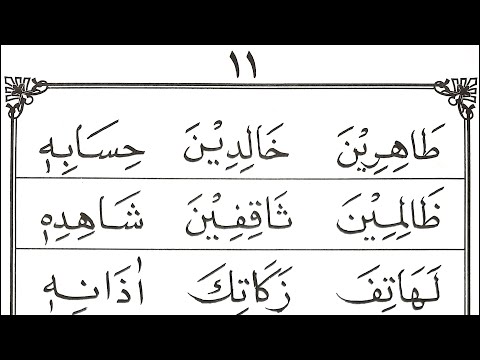 ١١
طَاهِرِيْنَ خَالِدِيْنَ حِسَابِهٖ
ظَالِمِيْنَ ثَاقِفِيْنَ شَاهِدِهٖ
لَهَاتِفَ زَكَاتِكَ اُذَانِهٖ